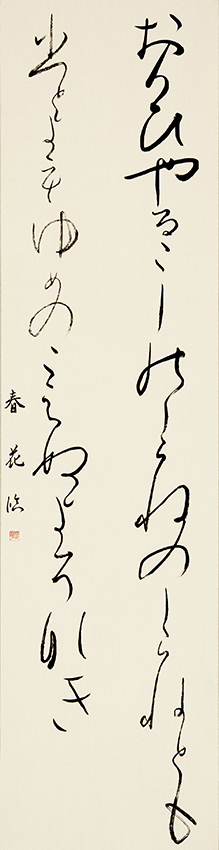 おもひやるこしのしらねのしらねとも
ひとよもゆめのこえぬよそなき
春花臨